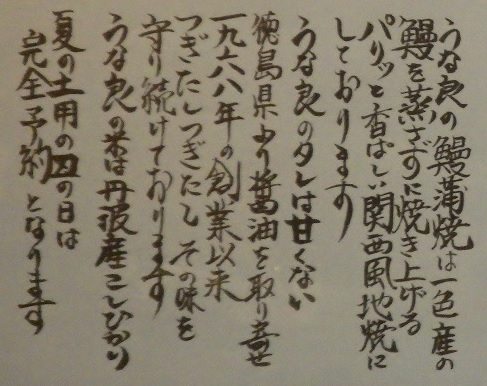 うな良の鰻蒲焼は一色産の
鰻を蒸さずに焼き上げる
パリッと香ばしい関西風地焼に
しております
うな良のタレは甘くない
徳島県より醤油を取り寄せ
一九六八年の創業以来
つぎたしつぎたし その味を
守り続けております
うな良の米は丹波産こしひかり
夏の土用の丑の日は
完全予約となります